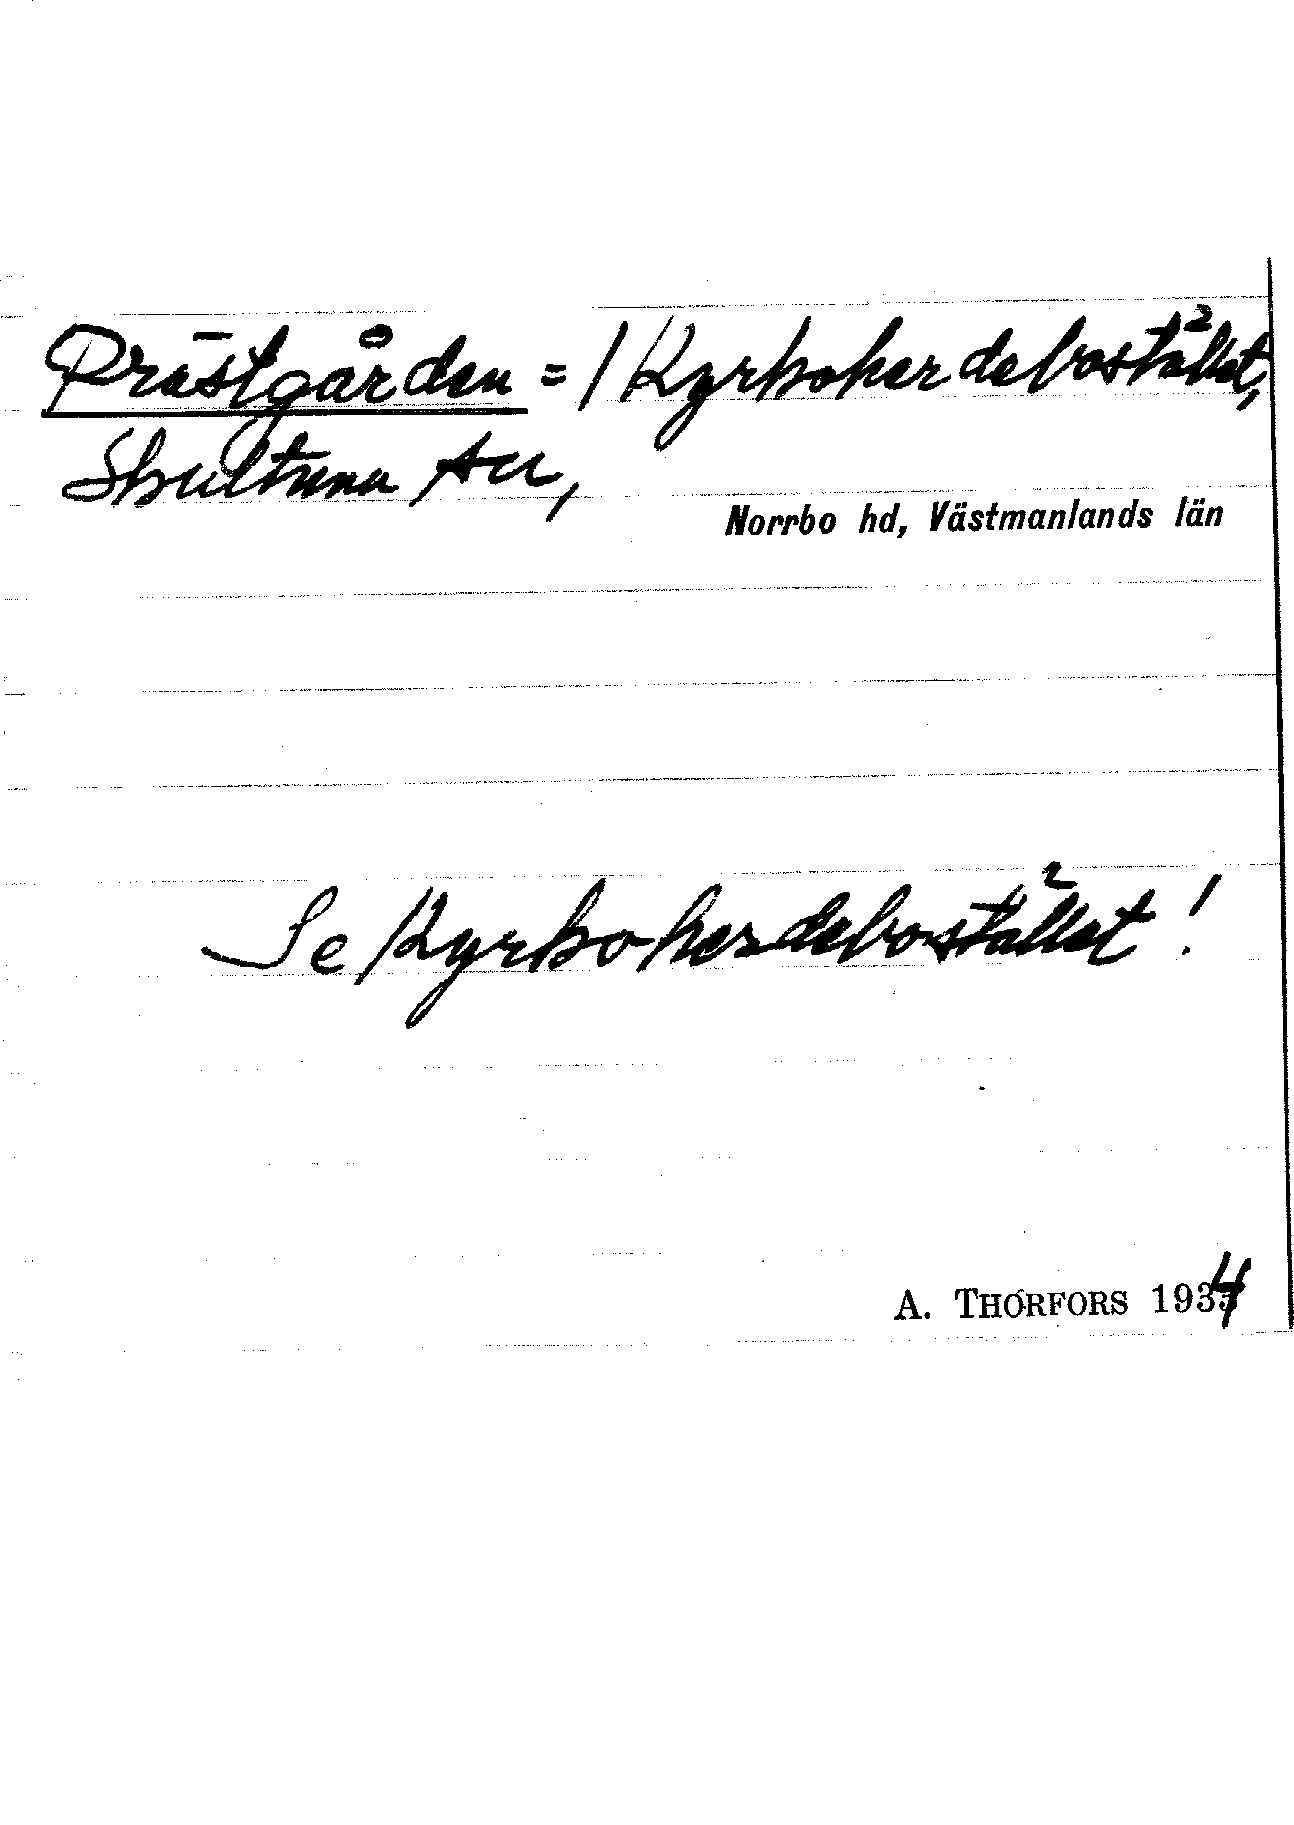 Prästgården = Kyrkoherdebostället,
Skultuna sn,
Norrbo hd, Västmanlands län
Se Kyrkoherdebostället!
A. THORFORS 1934